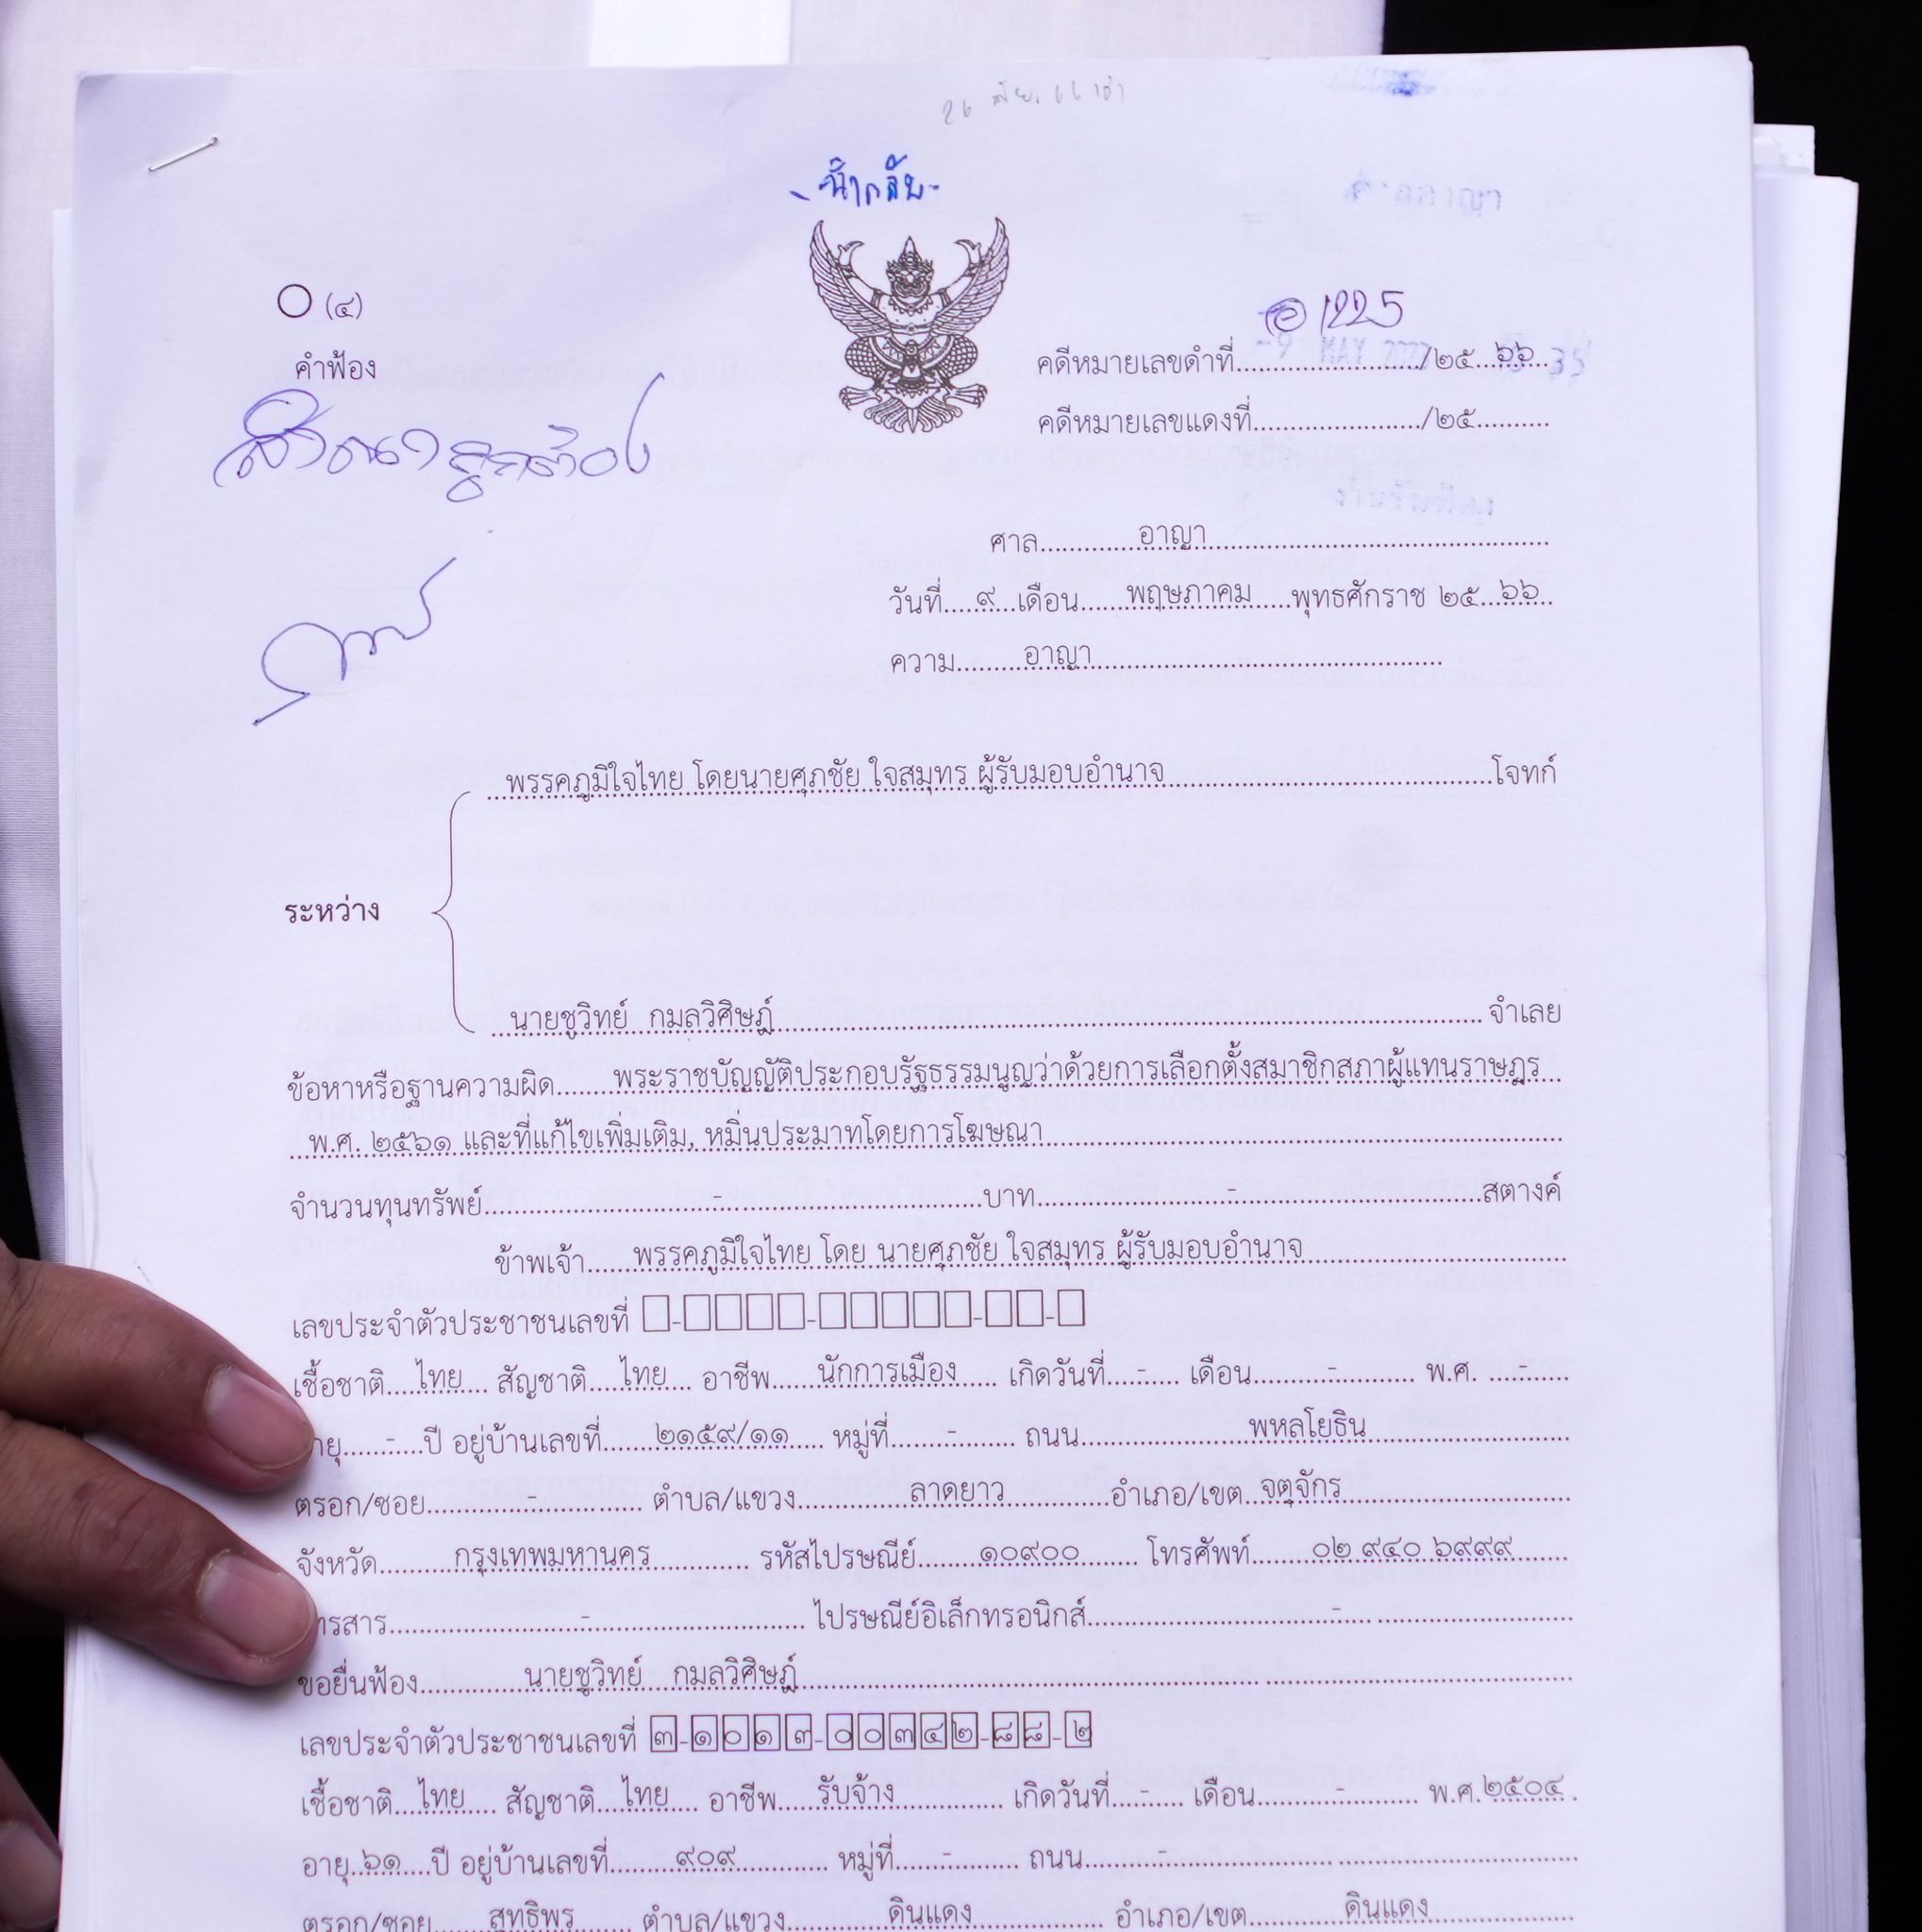 -นำกลับ-
(๔)
คำฟ้อง
อ 1225
คดีหมายเลขดำที่............/๒๕..๖๖..
คดีหมายเลขแดงที่............/๒๕..........
สำเนาถูกต้อง
ศาล............อาญา............
วันที่....๙...เดือน......พฤษภาคม.....พุทธศักราช ๒๕...๖๖...
ความ.........อาญา............
พรรคภูมิใจไทย โดยนายศุภชัย ใจสมุทร ผู้รับมอบอำนาจ............โจทก์
ระหว่าง
นายชูวิทย์ กมลวิศิษฎ์............จำเลย
ข้อหาหรือฐานความผิด.......พระราชบัญญัติประกอบรัฐธรรมนูญว่าด้วยการเลือกตั้งสมาชิกสภาผู้แทนราษฎร
พ.ศ. ๒๕๖๑ และที่แก้ไขเพิ่มเติม, หมิ่นประมาทโดยการโฆษณา............
จำนวนทุนทรัพย์............-............บาท............-............สตางค์
ข้าพเจ้า......พรรคภูมิใจไทย โดย นายศุภชัย ใจสมุทร ผู้รับมอบอำนาจ............
เลขประจำตัวประชาชนเลขที่
เชื้อชาติ....ไทย.... สัญชาติ....ไทย.... อาชีพ......นักการเมือง..... เกิดวันที่....-.... เดือน.........-......... พ.ศ. ....-.....
ายุ.....-....ปี อยู่บ้านเลขที่.......๒๑๕๙/๑๑.... หมู่ที่.......-....... ถนน............พหลโยธิน............
ตรอก/ซอย............-............ ตำบล/แขวง............ลาดยาว............อำเภอ/เขต..จตุจักร............
จังหวัด.........กรุงเทพมหานคร............ รหัสไปรษณีย์........๑๐๙๐๐....... โทรศัพท์........๐๒ ๙๔๐ ๖๙๙๙.......
ทรสาร............-............ ไปรษณีย์อิเล็กทรอนิกส์............-............
ขอยื่นฟ้อง............นายชูวิทย์ กมลวิศิษฎ์............
เลขประจำตัวประชาชนเลขที่ ๓-๑๐๑๓-๐๐๓๔๒-๘๘-๒
เชื้อชาติ....ไทย.... สัญชาติ....ไทย.... อาชีพ......รับจ้าง............ เกิดวันที่....-.... เดือน.........-......... พ.ศ.๒๕๐๔.
อายุ..๖๑....ปี อยู่บ้านเลขที่........๙๐๙............ หมู่ที่.......-....... ถนน.........-............
ตรอก/ซอย.......สุทธิพร....... ตำบล/แขวง............ดินแดง............ อำเภอ/เขต............ดินแดง............